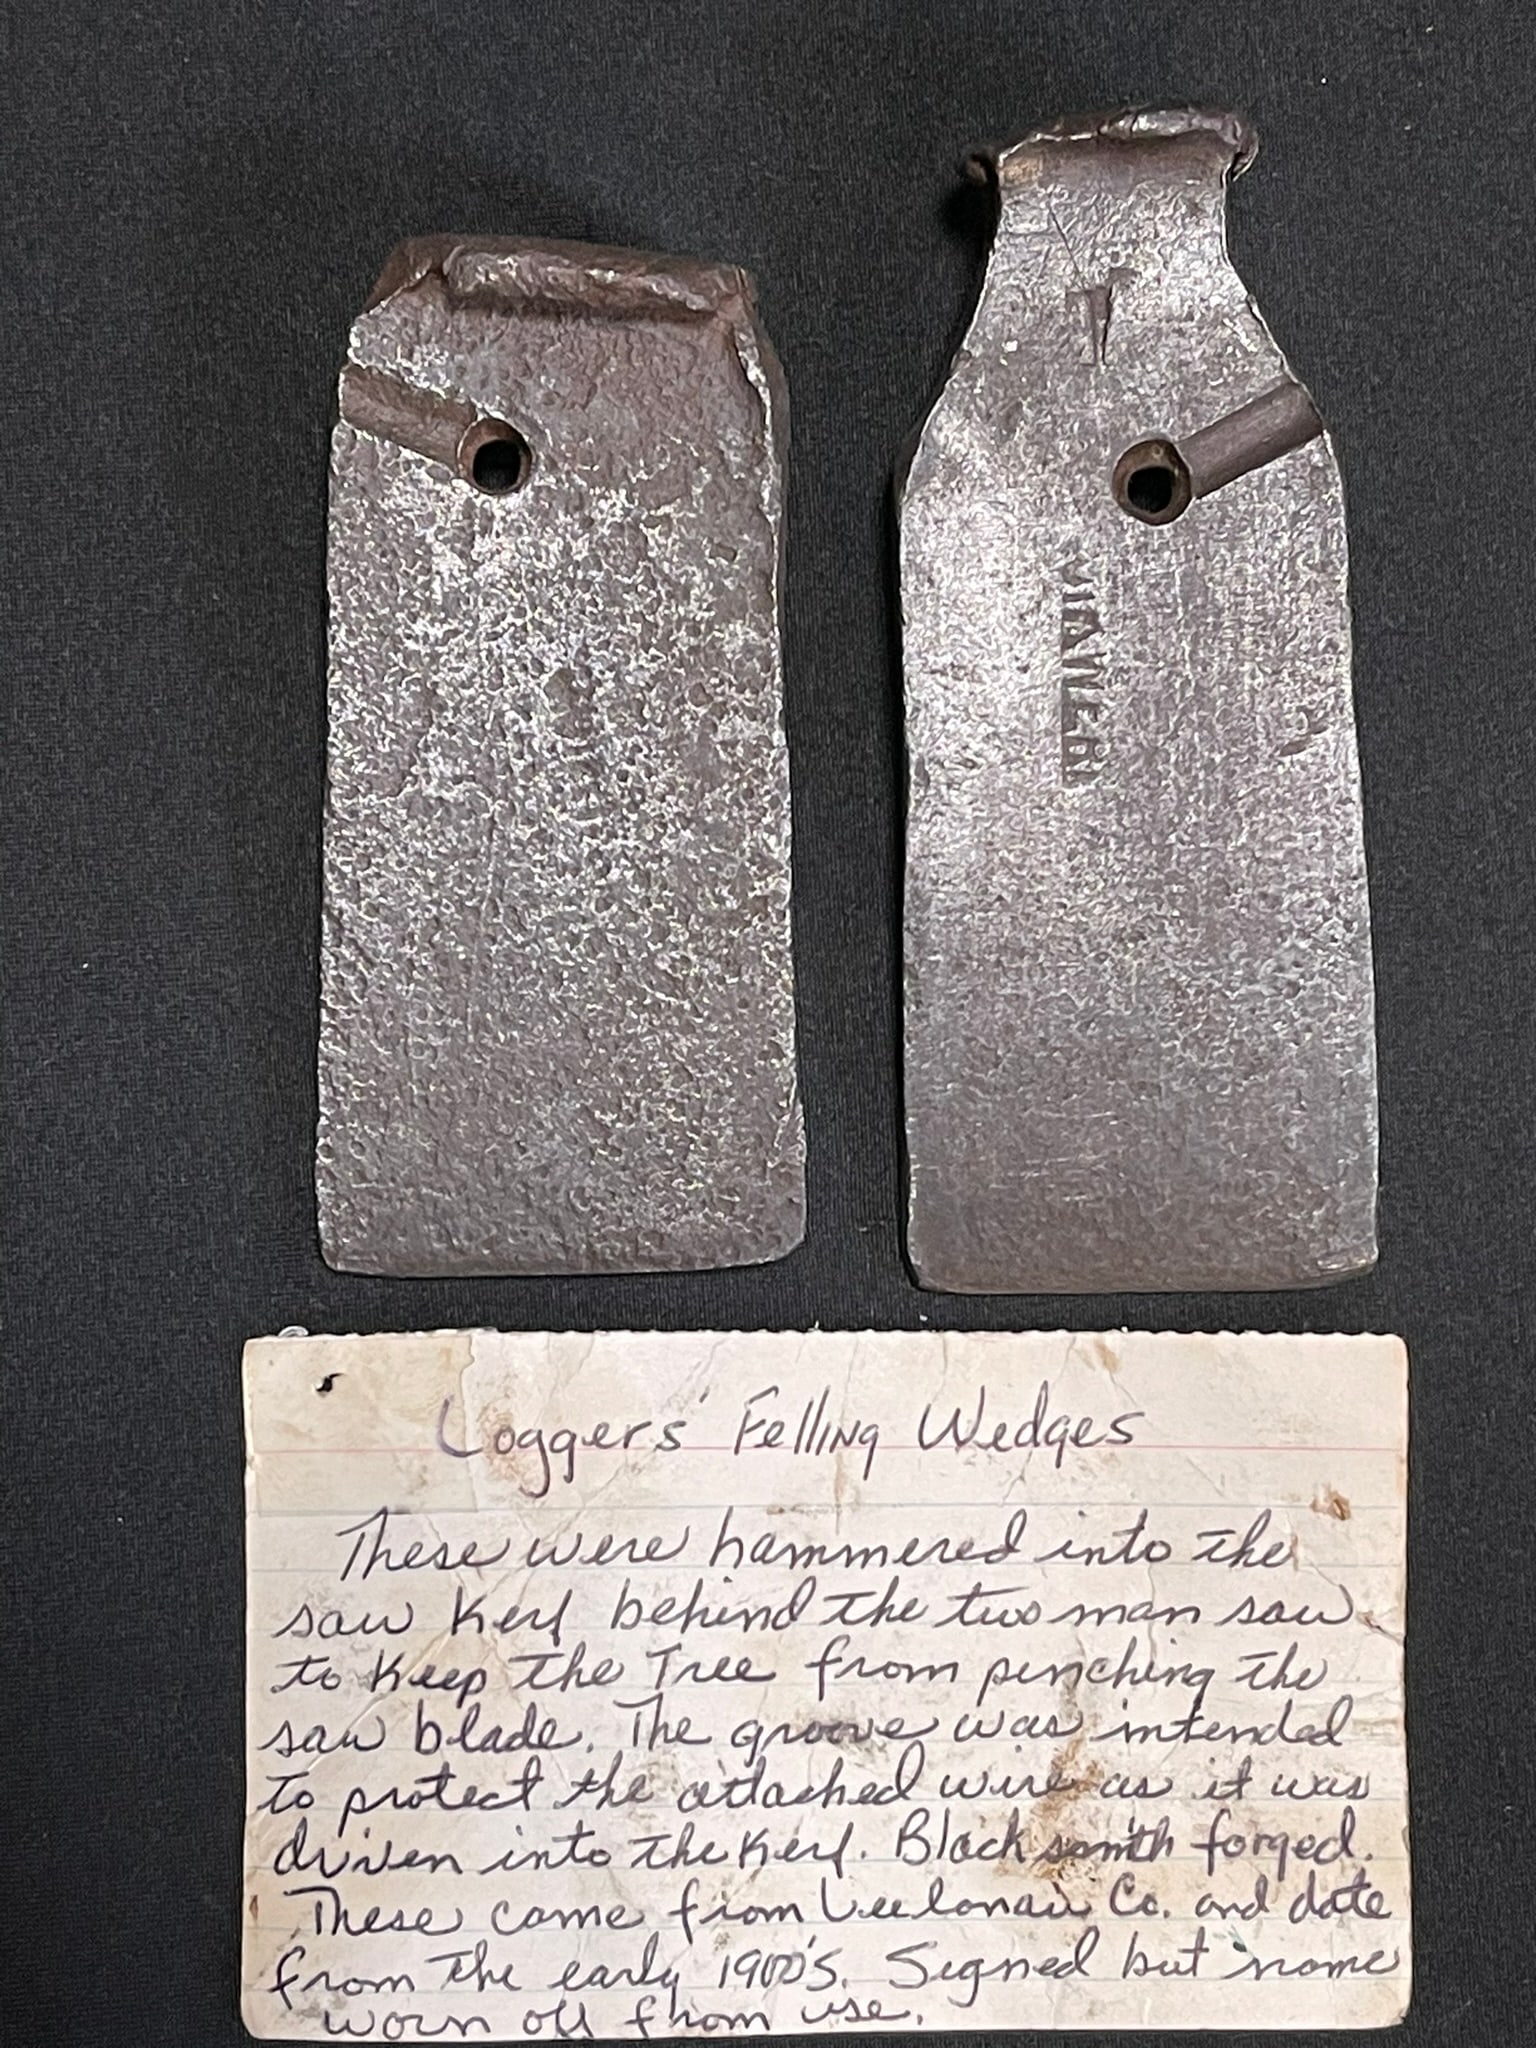 Loggers' Felling Wedges
These were hammered into the
saw Kerf behind the two man saw
to keep the Tree from pinching the
saw blade. The groove was intended
to protect the attached wire as it was
driven into the Kerf. Black smith forged.
These came from Leelanau Co. and date
from the early 1900's. Signed but name
worn off from use.